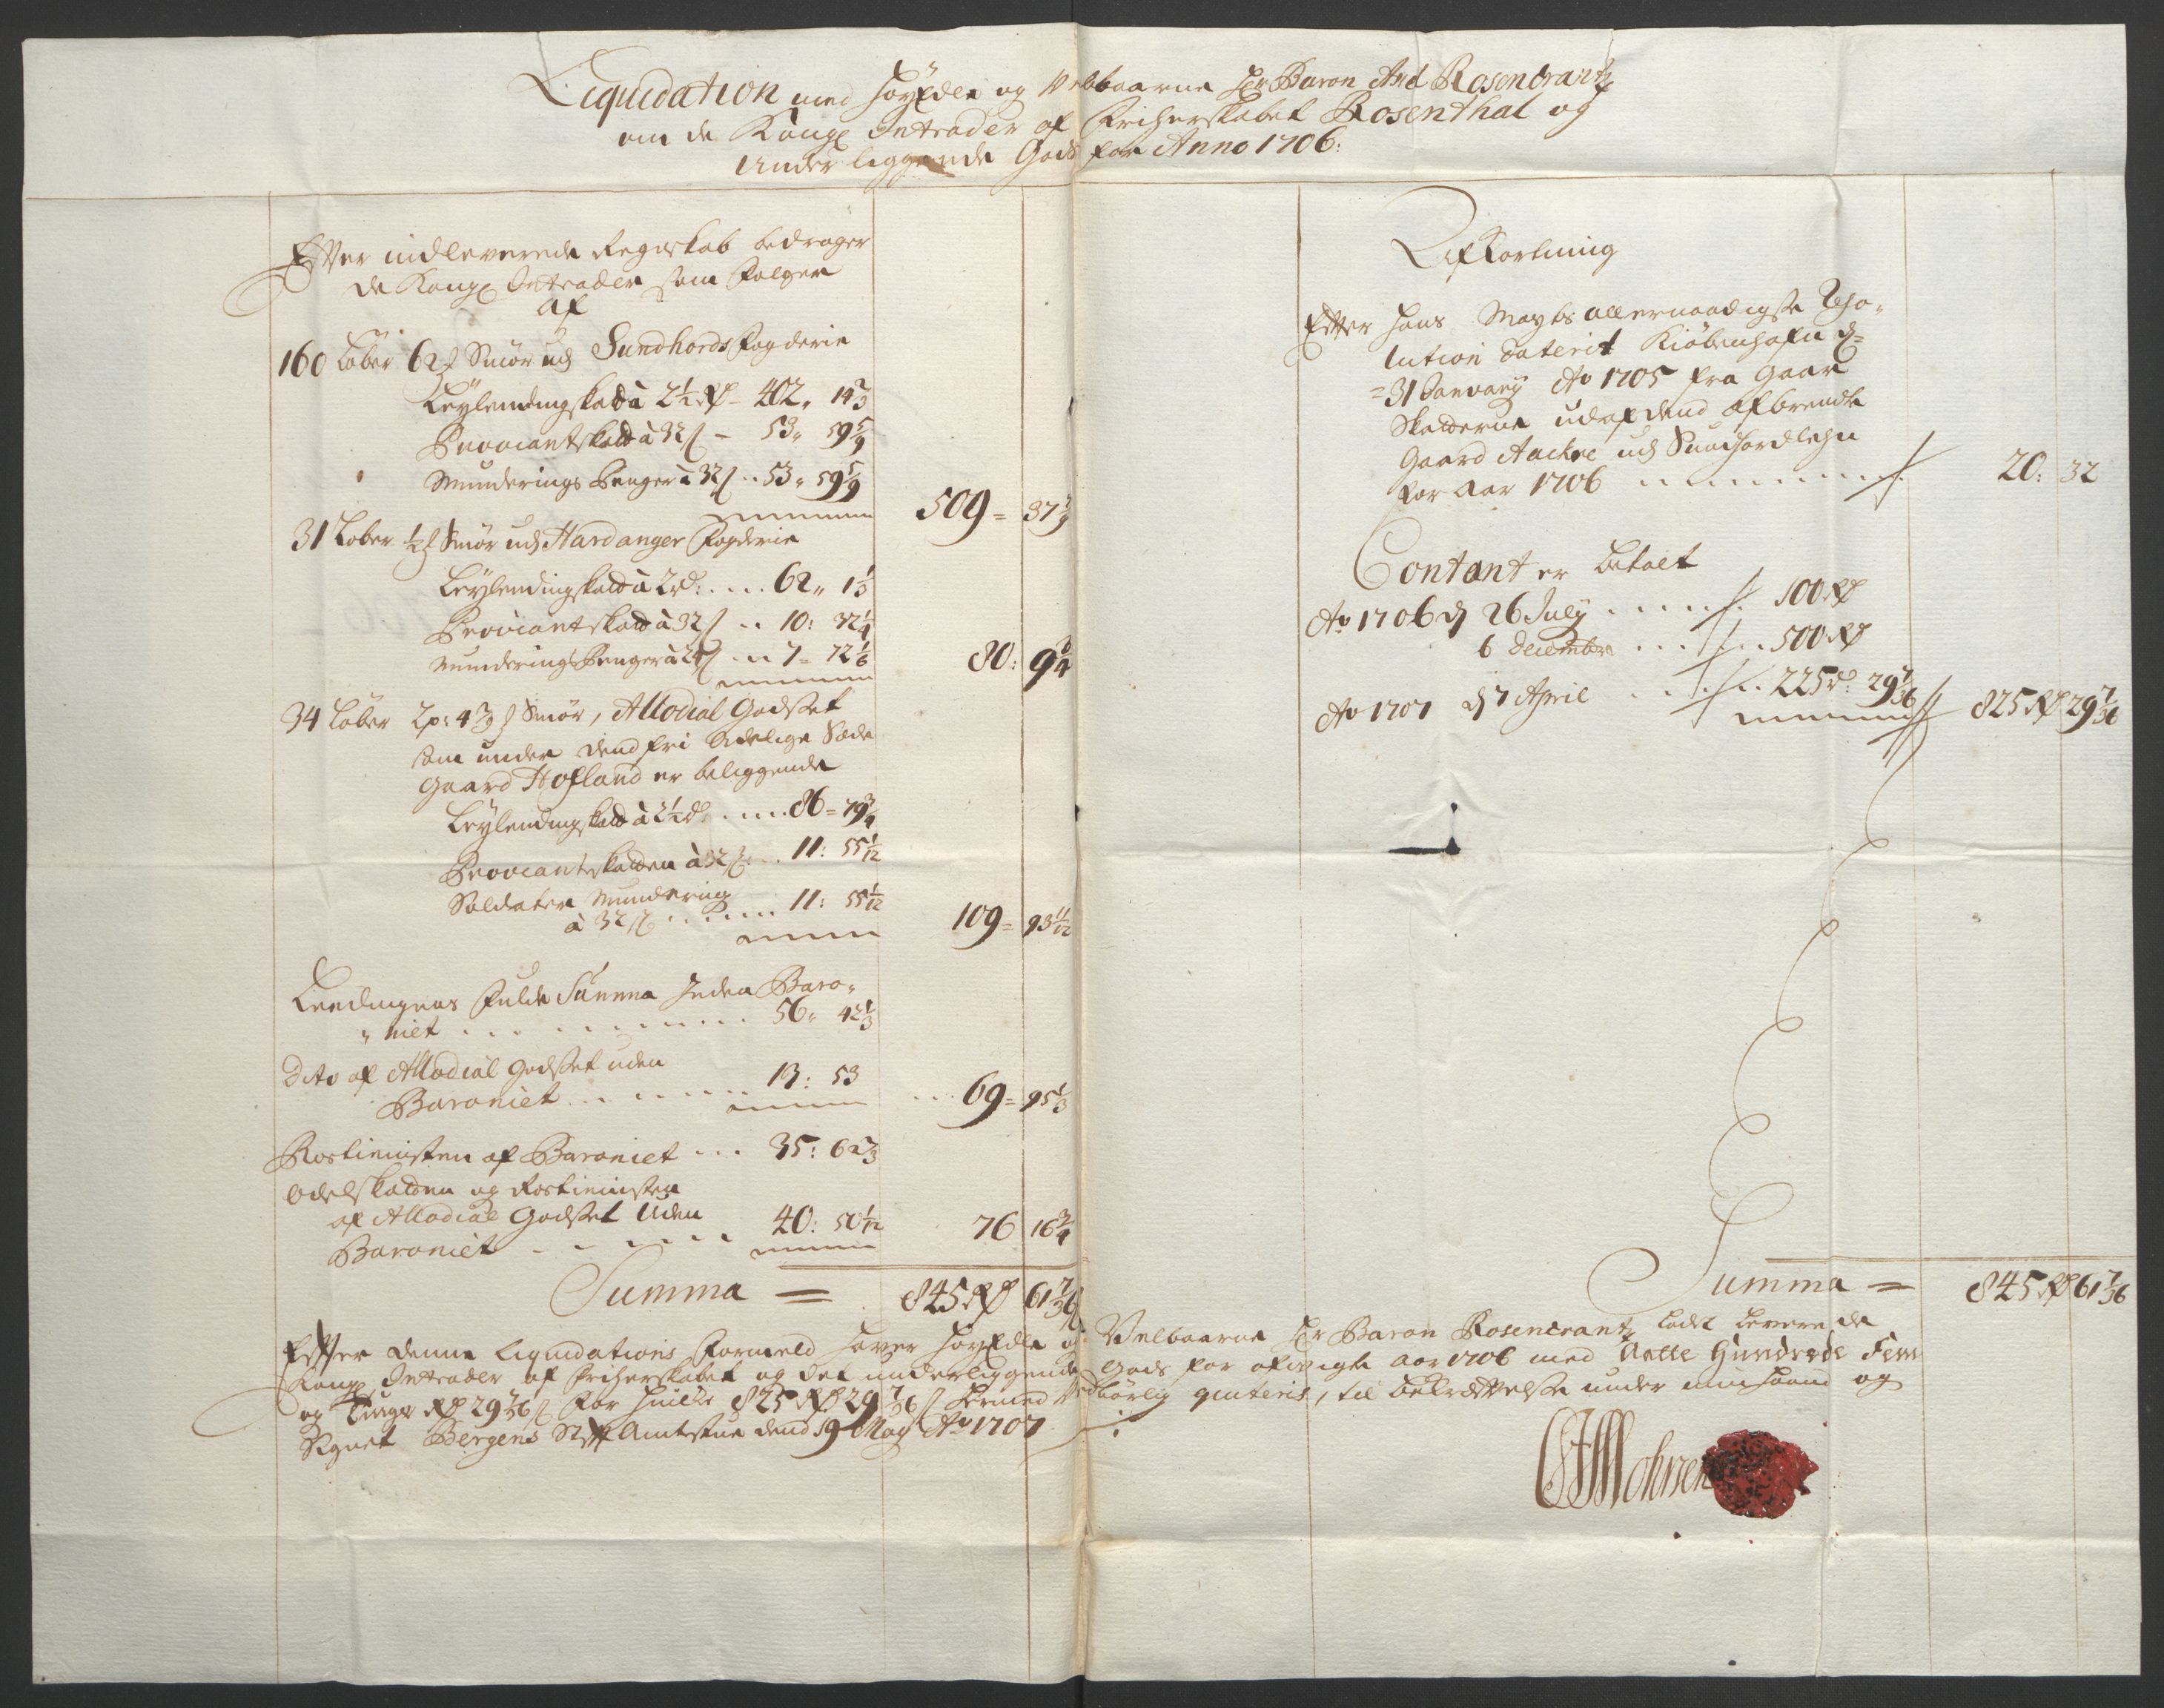 Liquidation med HøyEdle og Velbaarne Hr Baron Axel Rosencrantz
om de Kongl Intrader af Friherskabet Rosenthal og
Underliggende Gods for Anno 1706:
Efter indleverede Regnskab bedrager
de Kongl Intrader som Følger
af
160 Løber 62 Smør udj Sundhords Fogderie
Leylendingskatt à 2½ Rd - 402" 14 2/3
Proviantskatt à 32 s - 53" 59 5/9
Munderings Penger à 32 s .. 53" 59 5/9
509 = 37 7/9
31 Løber ½ Smør udj Hardanger Fogderie
Leylendingskatt à 2 rd: .... 62" 1 1/3
Proviantskatt à 32 s .. 10: 32 1/4
Munderings Penger à 24 s ... 7 = 72 1/6
80: 9 3/4
34 Løber 2 p: 4 Smør, Allodial Godset
som under dend fri Adelige Sæde
Gaard Hofland er beliggende
Leylendingskatt à 2½ d: ..... 86 = 79 3/4
Proviantskatten à 32 s: .. 11: 55 1/12
Soldater Mundering
à 32 s ....... 11: 55 1/12
109 = 93 11/12
Leedingens Fulde Summa Inden Baro-
niet ... ....... 56" 42 1/3
Dito af Allodial Godset uden
Baroniet ....... 13: 53
... 69 = 95 1/3
Rostienisten af Baroniet ... 35: 62 2/3
Odelskatten og Rostienisten
af Allodial Godset Uden
Baroniet ....... 40: 50 1/12
76 16 3/4
Summa = 845 Rd 61 7/36
Afkortning
Efter Hans Mayts allernaadigste Reso-
lution daterit Kiøbenhafn d=
=31 January Ao 1705 fra Gaar
Skatterne udaf dend afbrendte
Gaard Aackre udj Sundhordlehn
for Aar 1706 ......... 20: 32
Contant er betalt
Ao 1706 d 26 July ...... 100 Rd
6 Decembr ...... 500 Rd
Ao 1707 d 7 April ..... 225 d: 29 7/36
825 Rd 29 7/36
Summa = 845 Rd 61 7/36
Efter denne Liquidations Formeld haver HøyEdle og Velbaarne Hr Baron Rosencrantz ladet levere de
Kongl Intrader af Friherskabet og det underliggende Gods for afvigte Aar 1706 med Aatte Hundrede Fem
og Tiuge Rd 29 7/36 s for hvilke 825 Rd 29 7/36 s hermed Vedbørlig qviteris, til bekræftelse under min Haand og
Signet Bergens Stift Amtstue dend 19 May Ao 1707